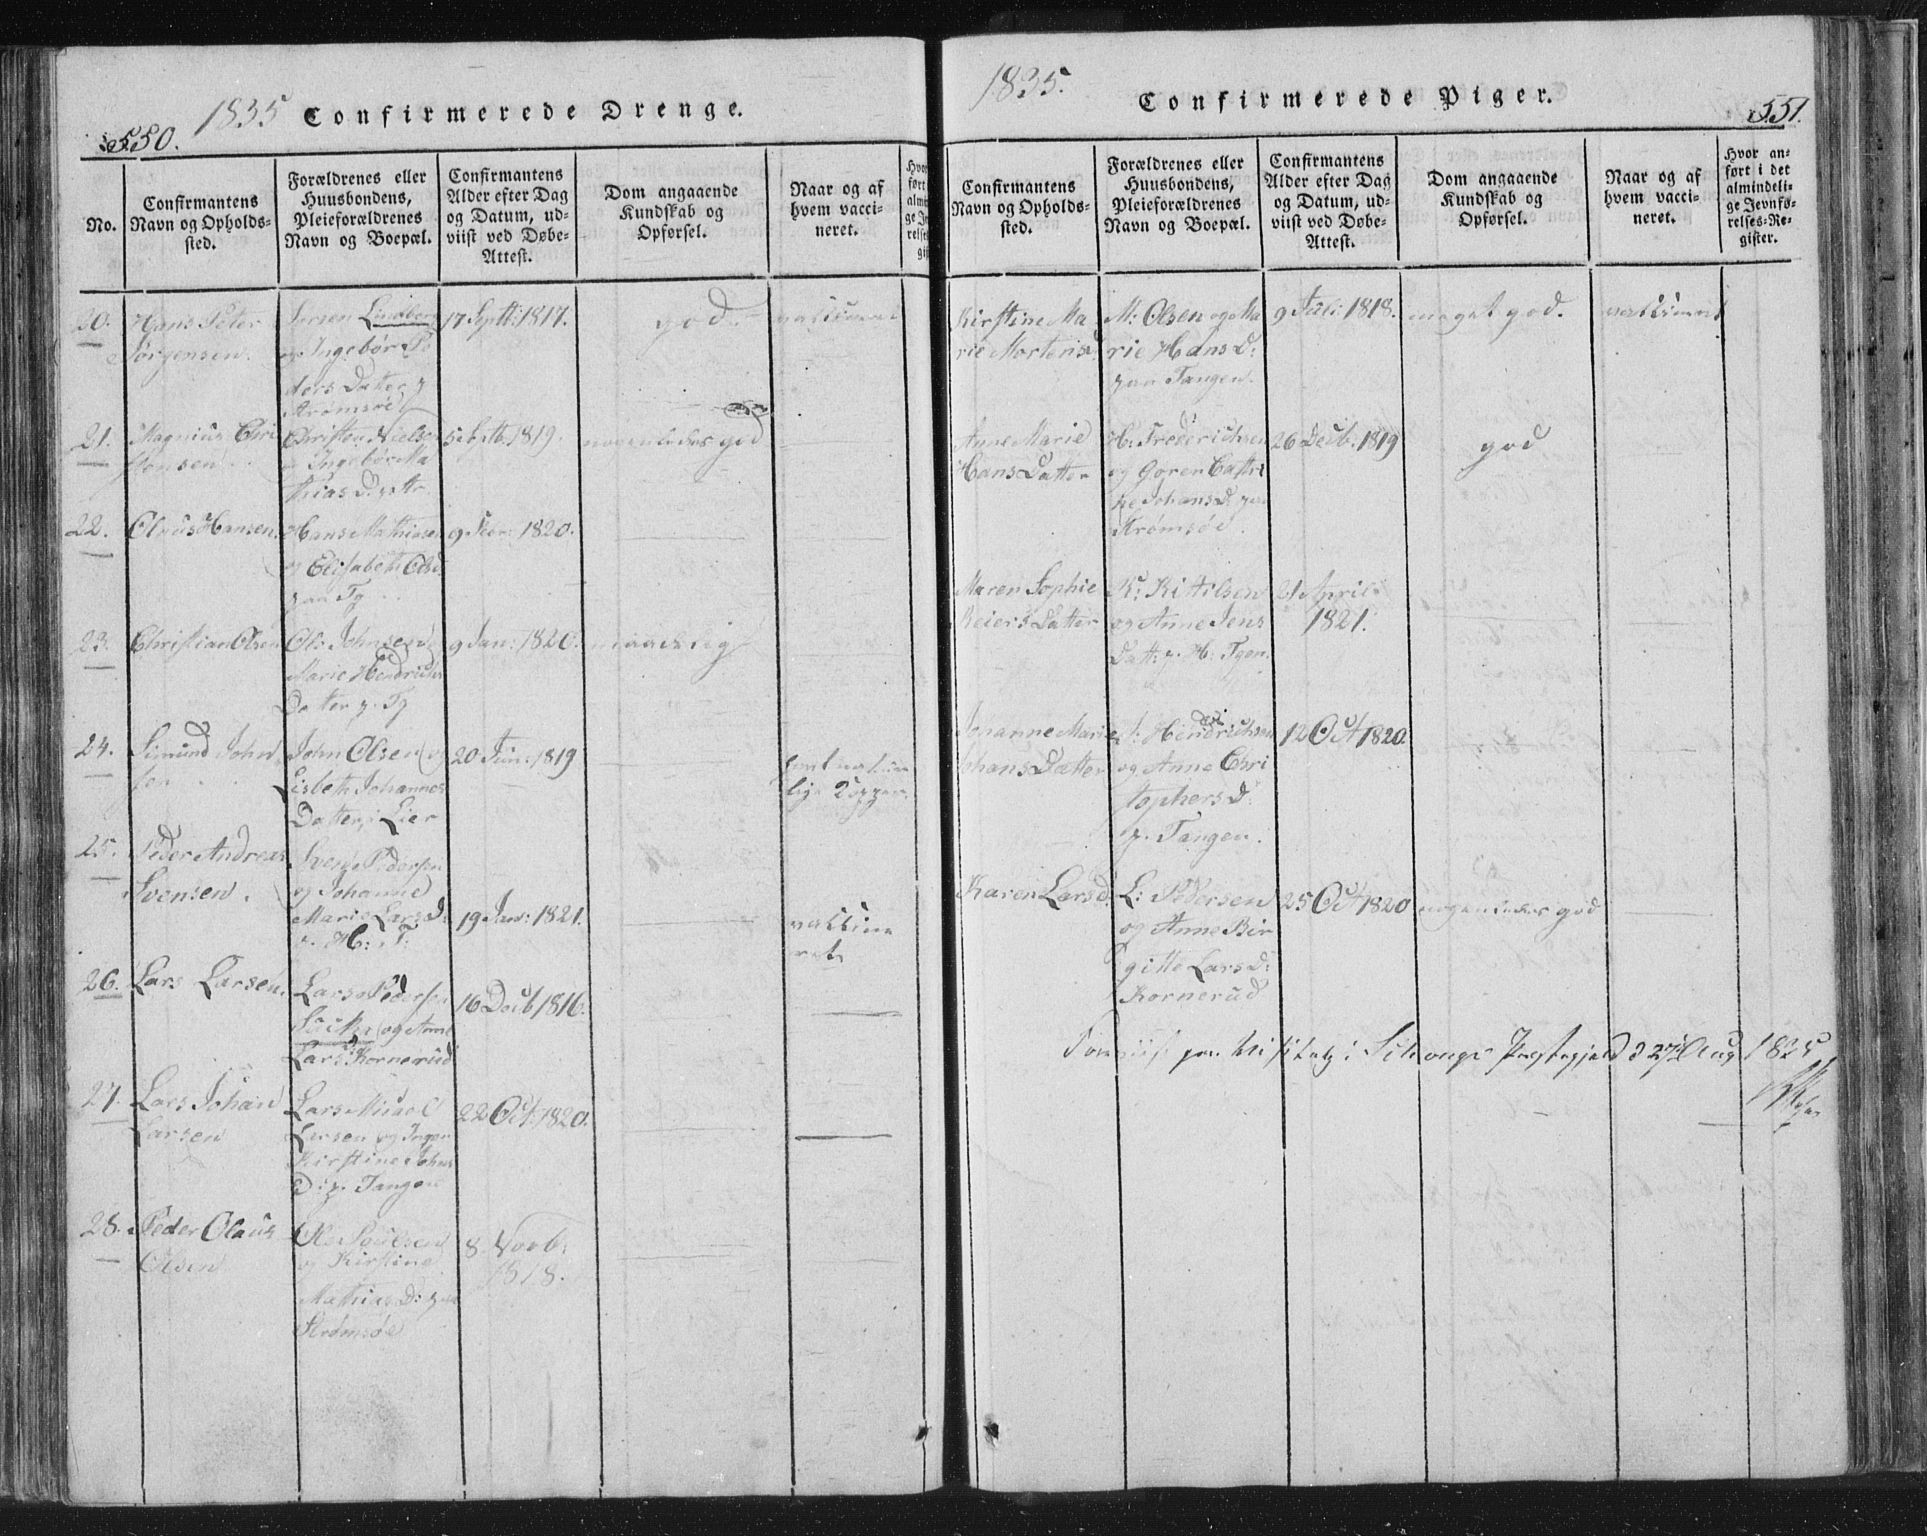 550.
1835 Confirmerede Drenge.
No.
Confirmantens
Navn og Opholds-
sted.
Forældrenes eller
Huusbondens,
Pleieforældrenes
Navn og Boepæl.
Confirmantens
Alder efter Dag
og Datum, ud-
viist ved Døbe-
Attest.
Dom angaaende
Kundskab og
Opførsel.
Naar og af
hvem vacci-
neret.
20.
Hans Peter
Jørgensen.
Jørgen Lindberg
og Ingebor Pe
ders Datter p
Strømsøe
17 Septb: 1817.
god.
vaccineret
21.
Magnius Chri
stensen.
Christen Nielsen
og Ingebor Ma
thias D:
5 Septb 1819.
nogenledes god
22.
Olaus Hansen.
Hans Mathiesen
og Elisabeth Ols D
paa Tg.
9 Febr: 1820.
23.
Christian Olsen
Ole Johnsen
Marie Hendrichs
Datter p. Tg
9 Jan: 1820.
maadelig
24.
Simund John
sen
John Olsen og
Lisbeth Johannes
Datter, i Lier
20 Jun: 1819
havt naturlige
lige Kopper.
25.
Peder Andreas
Svensen.
Svend Pedersen
og Johanne
Marie Lars D:
p. H: T:
19 Jan: 1821.
vaccine
ret
26.
Lars Larsen.
Lars Pedersen
og Anne
Lars D: Kornerud
16 Decb 1816.
27.
Lars Johan
Larsen
Lars Micael
Larsen og Inger
Kirstine Johns
D: p. Tangen
22 Oct: 1820.
28.
Peder Olaus
Olsen
Ole Poulsen
og Kirstine
Mathias D: paa
Strømsøe
8 Novb:
1818.
1835. Confirmerede Piger. 551.
Confirmantens
Navn og Opholds-
sted.
Forældrenes eller
Huusbondens,
Pleieforældrenes
Navn og Boepæl.
Confirmantens
Alder efter Dag
og Datum, ud-
viist ved Døbe-
Attest.
Dom angaaende
Kundskab og
Opførsel.
Naar og af
hvem vacci-
neret.
Hvor an-
ført i det
almindeli-
ge Jevnfø-
relses-Re-
gister.
Kirstine Ma
rie Mortens D
M: Olsen og Ma
rie Hans D:
paa Tangen.
9 Juli: 1818.
meget god.
vaccineret
Anne Marie
Hans Datter
H: Frederichsen
og Goren Cathri
ne Johans D. paa
Strømsøe.
26 Decb: 1819
god
Maren Sophie
Reiers Datter
R: Kittilsen
og Anne Jens
Datt: p. H: Tgen.
21 April
1821.
Johanne Marie
Johans Datter
J: Hendrichsen
og Anne Chri
stophers D:
p. Tangen.
12 Oct 1820
Karen Lars D.
L: Pedersen
og Anne Bir
gitte Lars D:
Kornerud
25 Oct 1820
nogenledes god
Foreviist paa Visitatz i Præstegjeld d 27 Aug 1835